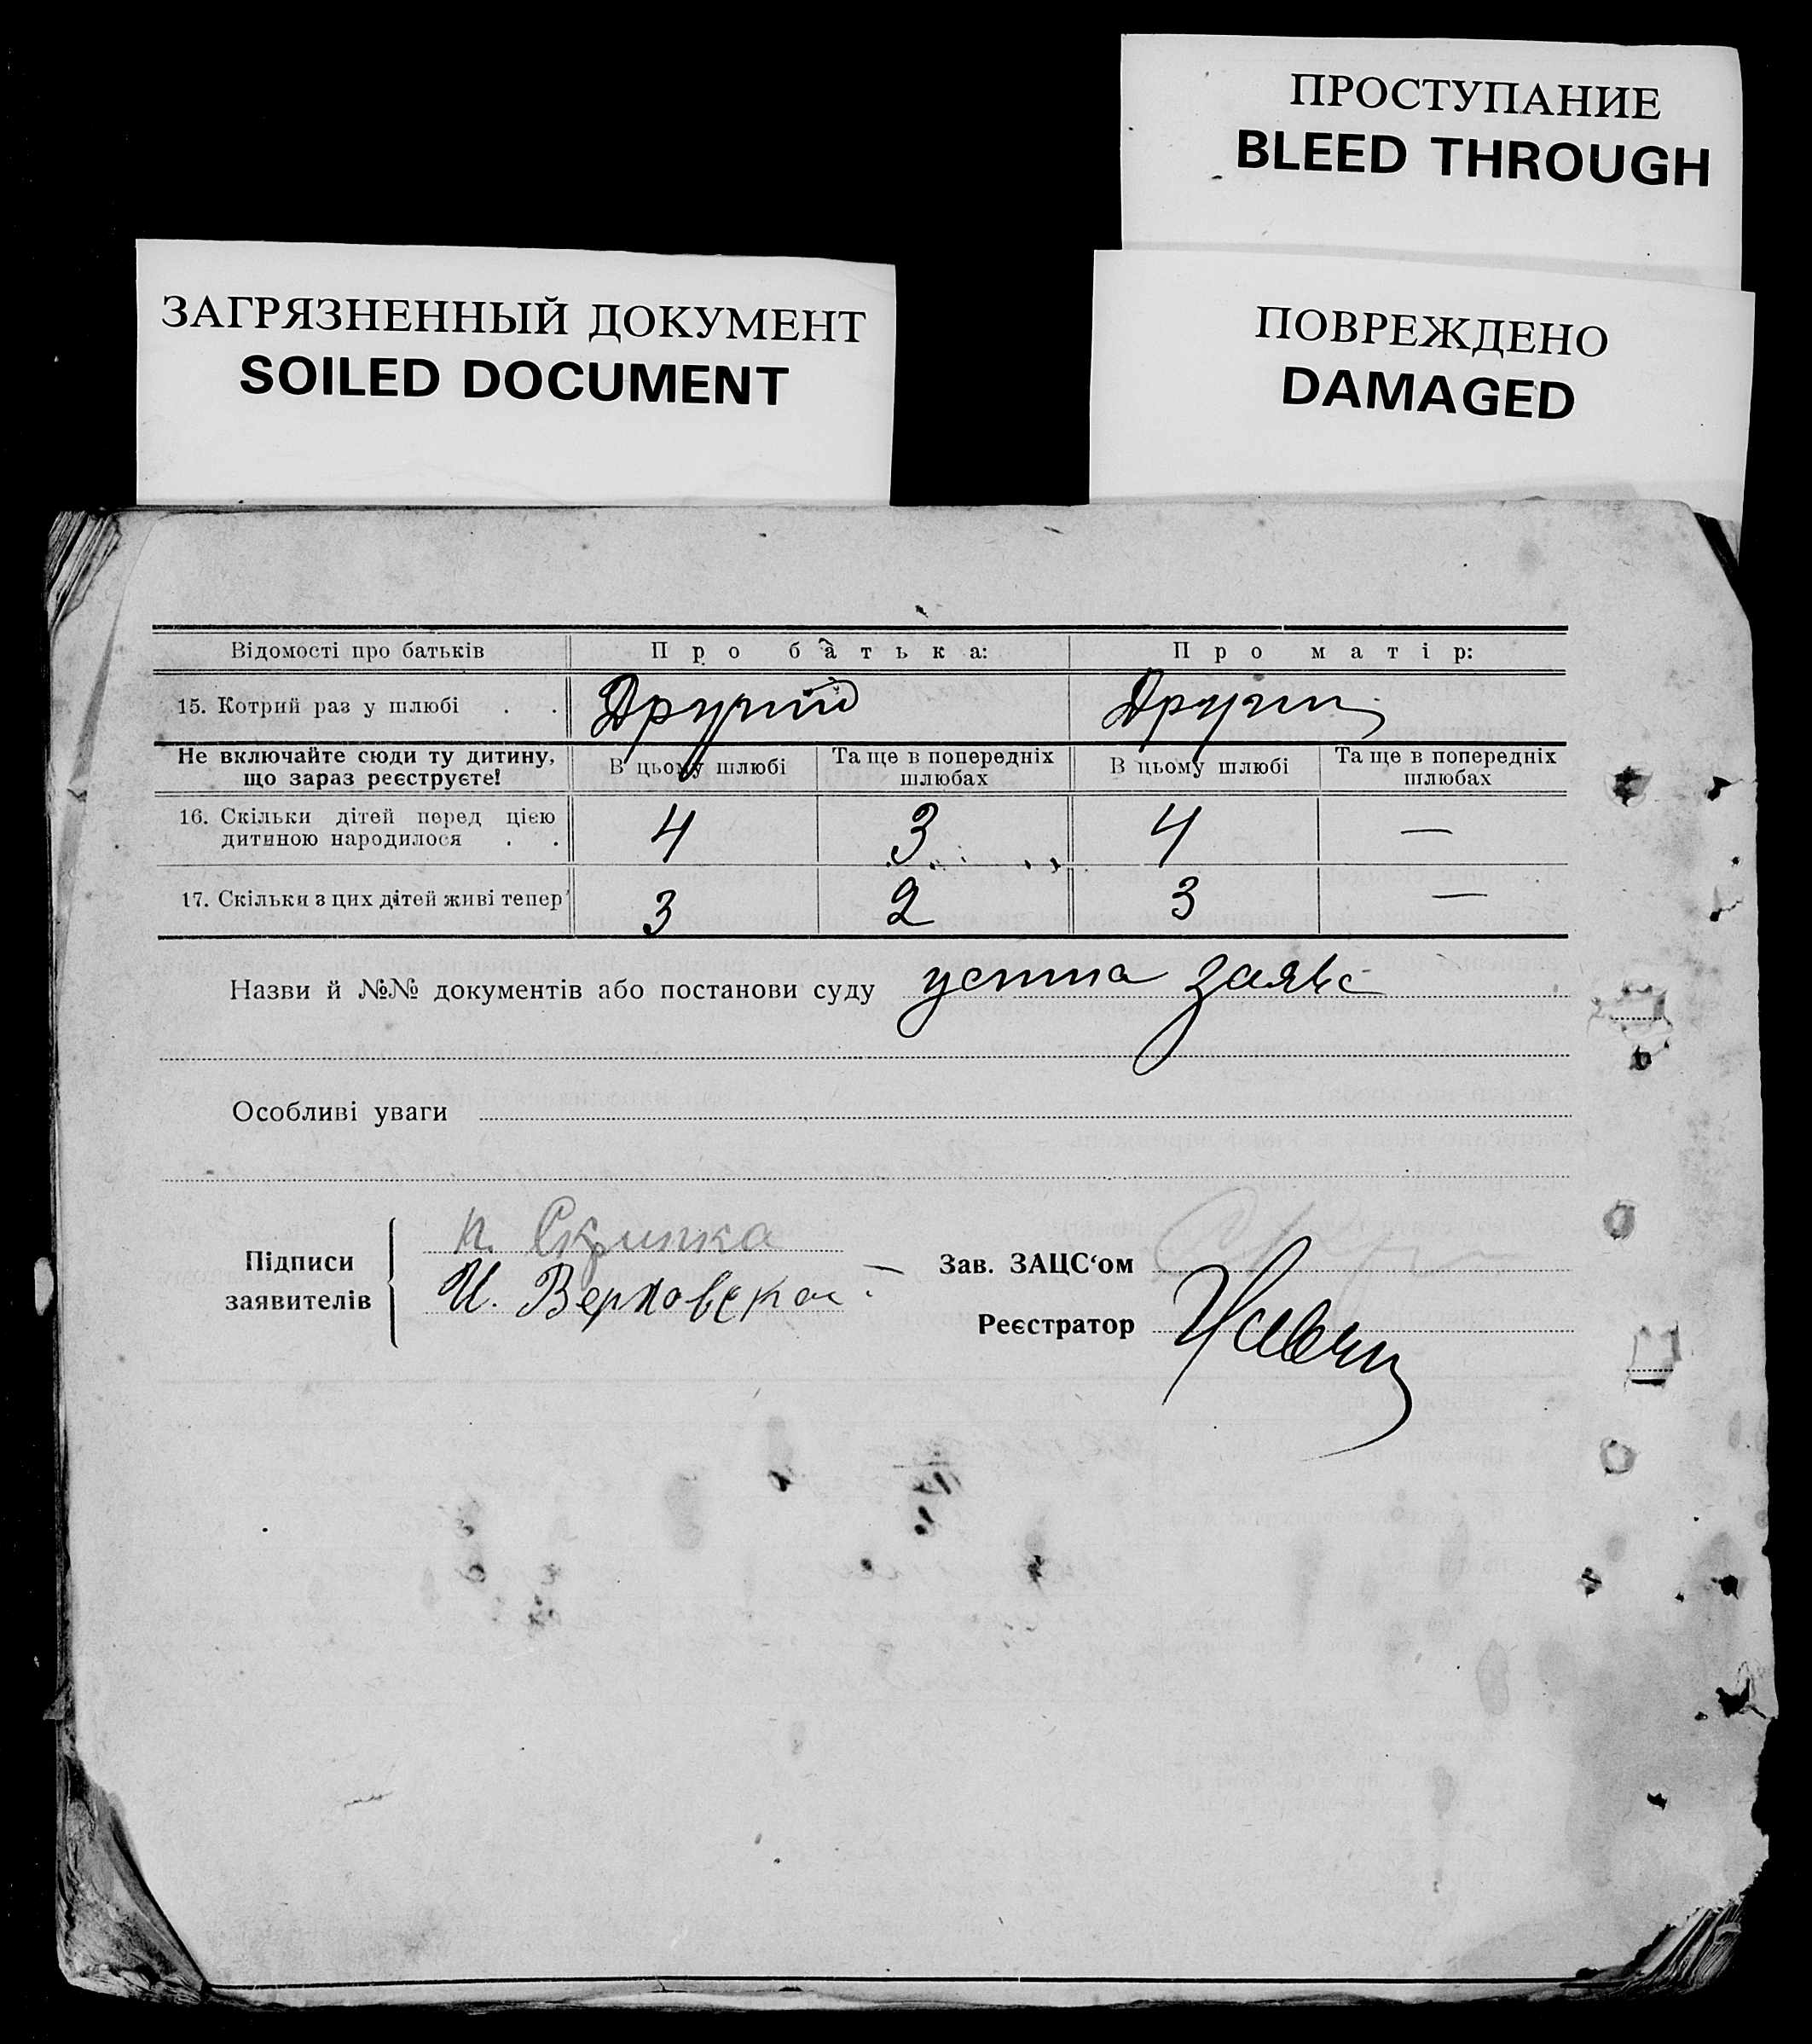 ПРОСТУПАНИЕ
BLEED THROUGH
ЗАГРЯЗНЕННЫЙ ДОКУМЕНТ
SOILED DOCUMENT
ПОВРЕЖДЕНО
DAMAGED
Відомості про батьків Про батька: Про матір:
15. Котрий раз у шлюбі . . Другий Други
Не включайте сюди ту дитину, що зараз реєструєте! В цьому шлюбі Та ще в попередніх шлюбах В цьому шлюбі Та ще в попередніх шлюбах
16. Скільки дітей перед цією дитиною народилося . . 4 3 4 —
17. Скільки з цих дітей живі тепер 3 2 3 —
Назви й №№ документів або постанови суду устна заява
Особливі уваги
Підписи заявителів
п. Скрипка
И. Верховская
Зав. ЗАЦС‘ом
Реєстратор